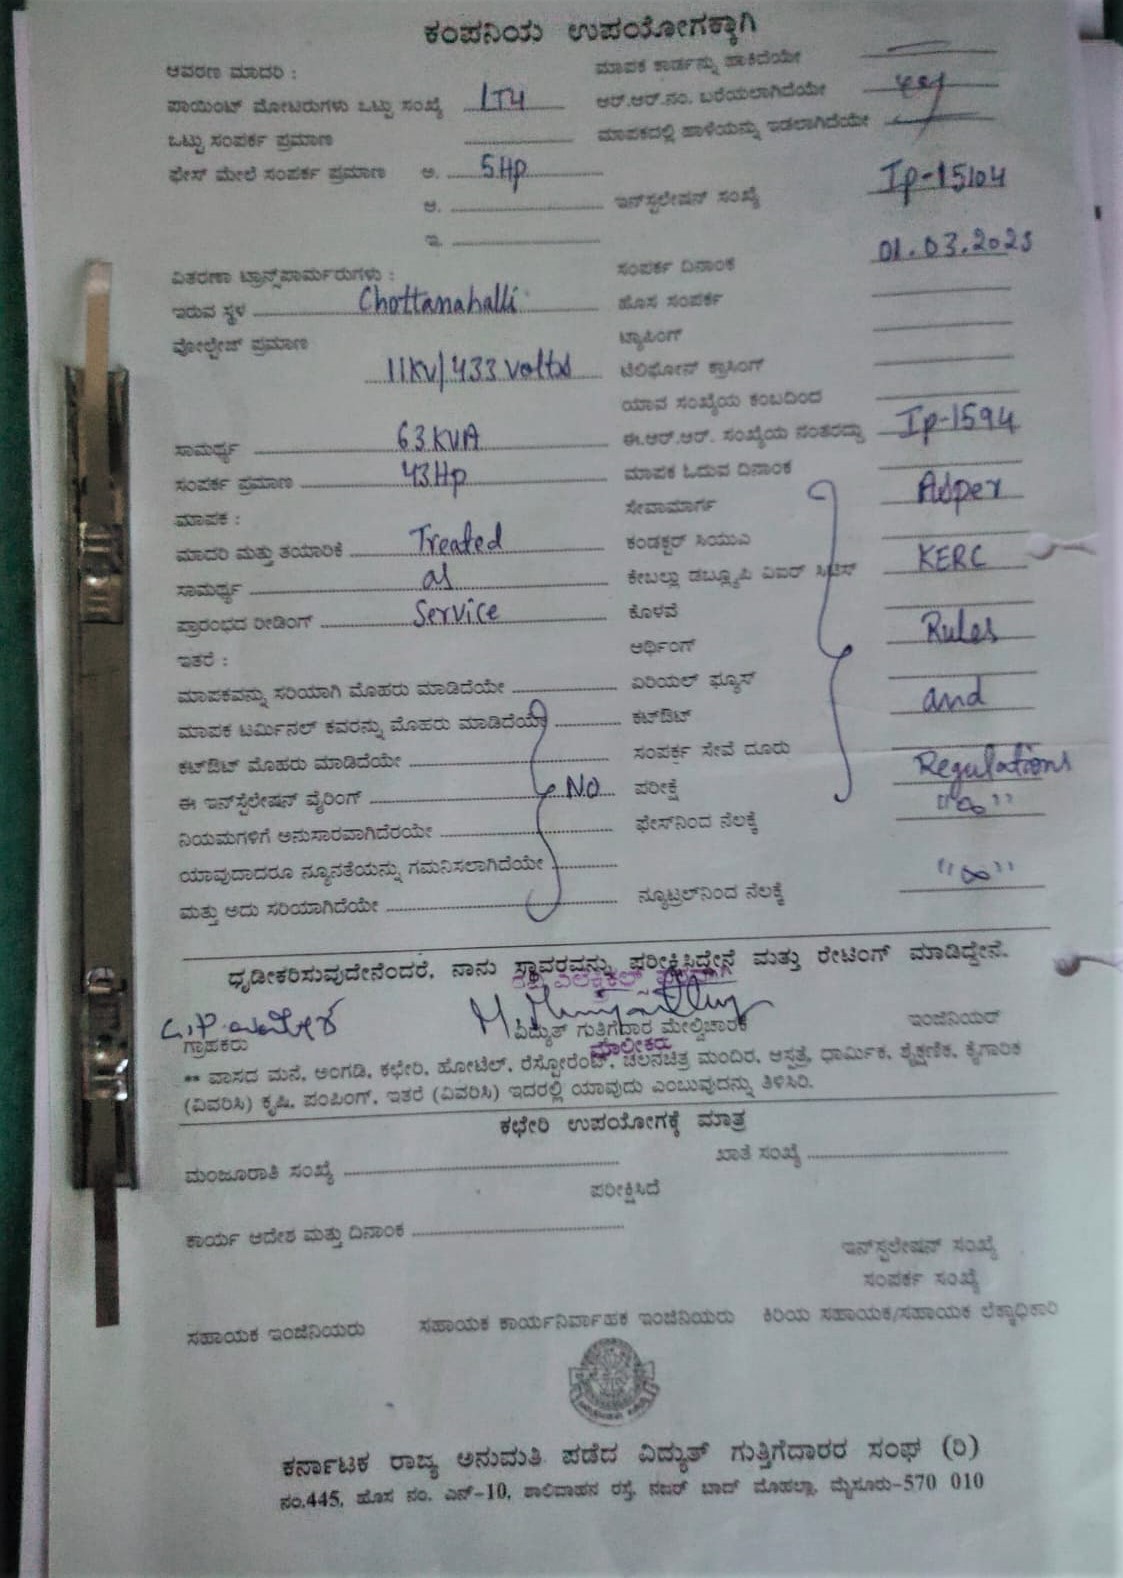 ಕಂಪನಿಯ ಉಪಯೋಗಕ್ಕಾಗಿ
ಆವರಣ ಮಾದರಿ :
ಮಾಪಕ ಕಾರ್ಡನ್ನು ಹಾಕಿದೆಯೇ
ಪಾಯಿಂಟ್ ಮೋಟರುಗಳು ಒಟ್ಟು ಸಂಖ್ಯೆ LT4
ಆರ್.ಆರ್.ನಂ. ಬರೆಯಲಾಗಿದೆಯೇ yes
ಒಟ್ಟು ಸಂಪರ್ಕ ಪ್ರಮಾಣ
ಮಾಪಕದಲ್ಲಿ ಹಾಳೆಯನ್ನು ಇಡಲಾಗಿದೆಯೇ
ಫೇಸ್ ಮೇಲೆ ಸಂಪರ್ಕ ಪ್ರಮಾಣ ಅ. 5Hp
ಆ.
ಇನ್‌ಸ್ಟಲೇಷನ್ ಸಂಖ್ಯೆ Ip-15104
ಇ.
ವಿತರಣಾ ಟ್ರಾನ್ಸ್‌ಫಾರ್ಮರುಗಳು :
ಸಂಪರ್ಕ ದಿನಾಂಕ 01.03.2025
ಇರುವ ಸ್ಥಳ Chottanahalli
ಹೊಸ ಸಂಪರ್ಕ
ವೋಲ್ಟೇಜ್ ಪ್ರಮಾಣ 11KV/433 volts
ಟ್ಯಾಪಿಂಗ್
ಟೆಲಿಫೋನ್ ಕ್ರಾಸಿಂಗ್
ಯಾವ ಸಂಖ್ಯೆಯ ಕಂಬದಿಂದ
ಸಾಮರ್ಥ್ಯ 63 KVA
ಈ.ಆರ್.ಆರ್. ಸಂಖ್ಯೆಯ ನಂತರದ್ದು Ip-1594
ಸಂಪರ್ಕ ಪ್ರಮಾಣ 43Hp
ಮಾಪಕ ಓದುವ ದಿನಾಂಕ
ಮಾಪಕ :
ಸೇವಾಮಾರ್ಗ Asper
ಮಾದರಿ ಮತ್ತು ತಯಾರಿಕೆ Treated
ಕಂಡಕ್ಟರ್ ಸಿಯುಎ
ಸಾಮರ್ಥ್ಯ as
ಕೇಬಲ್ಲು ಡಬ್ಲ್ಯೂಪಿ ವಿಐರ್ ಸಿಟಿಎಸ್ KERC
ಪ್ರಾರಂಭದ ರೀಡಿಂಗ್ Service
ಕೊಳವೆ
ಇತರೆ :
ಅರ್ಥಿಂಗ್ Rules
ಮಾಪಕವನ್ನು ಸರಿಯಾಗಿ ಮೊಹರು ಮಾಡಿದೆಯೇ
ಏರಿಯಲ್ ಫ್ಯೂಸ್
ಮಾಪಕ ಟರ್ಮಿನಲ್ ಕವರನ್ನು ಮೊಹರು ಮಾಡಿದೆಯೇ
ಕಟ್‌ಔಟ್ and
ಕಟ್‌ಔಟ್ ಮೊಹರು ಮಾಡಿದೆಯೇ
ಸಂಪರ್ಕ ಸೇವೆ ದೂರು
ಈ ಇನ್‌ಸ್ಟಲೇಷನ್ ವೈರಿಂಗ್ NO
ಪರೀಕ್ಷೆ Regulations
ನಿಯಮಗಳಿಗೆ ಅನುಸಾರವಾಗಿದೆರಯೇ
ಫೇಸ್‌ನಿಂದ ನೆಲಕ್ಕೆ "∞"
ಯಾವುದಾದರೂ ನ್ಯೂನತೆಯನ್ನು ಗಮನಿಸಲಾಗಿದೆಯೇ
ಮತ್ತು ಅದು ಸರಿಯಾಗಿದೆಯೇ
ನ್ಯೂಟ್ರಲ್‌ನಿಂದ ನೆಲಕ್ಕೆ "∞"
ಧೃಡೀಕರಿಸುವುದೇನೆಂದರೆ, ನಾನು ಸ್ಥಾವರವನ್ನು ಪರೀಕ್ಷಿಸಿದ್ದೇನೆ ಮತ್ತು ರೇಟಿಂಗ್ ಮಾಡಿದ್ದೇನೆ.
ಗ್ರಾಹಕರು
ವಿದ್ಯುತ್ ಗುತ್ತಿಗೆದಾರ ಮೇಲ್ವಿಚಾರಕ
ಇಂಜಿನಿಯರ್
ಮಾಲೀಕರು
** ವಾಸದ ಮನೆ, ಅಂಗಡಿ, ಕಛೇರಿ, ಹೋಟೆಲ್, ರೆಸ್ಟೋರೆಂಟ್, ಚಲನಚಿತ್ರ ಮಂದಿರ, ಆಸ್ಪತ್ರೆ, ಧಾರ್ಮಿಕ, ಶೈಕ್ಷಣಿಕ, ಕೈಗಾರಿಕ
(ವಿವರಿಸಿ) ಕೃಷಿ, ಪಂಪಿಂಗ್, ಇತರೆ (ವಿವರಿಸಿ) ಇದರಲ್ಲಿ ಯಾವುದು ಎಂಬುವುದನ್ನು ತಿಳಿಸಿರಿ.
ಕಛೇರಿ ಉಪಯೋಗಕ್ಕೆ ಮಾತ್ರ
ಮಂಜೂರಾತಿ ಸಂಖ್ಯೆ
ಖಾತೆ ಸಂಖ್ಯೆ
ಪರೀಕ್ಷಿಸಿದೆ
ಕಾರ್ಯ ಆದೇಶ ಮತ್ತು ದಿನಾಂಕ
ಇನ್‌ಸ್ಟಲೇಷನ್ ಸಂಖ್ಯೆ
ಸಂಪರ್ಕ ಸಂಖ್ಯೆ
ಸಹಾಯಕ ಇಂಜಿನಿಯರು ಸಹಾಯಕ ಕಾರ್ಯನಿರ್ವಾಹಕ ಇಂಜಿನಿಯರು ಕಿರಿಯ ಸಹಾಯಕ/ಸಹಾಯಕ ಲೆಕ್ಕಾಧಿಕಾರಿ
ಕರ್ನಾಟಕ ರಾಜ್ಯ ಅನುಮತಿ ಪಡೆದ ವಿದ್ಯುತ್ ಗುತ್ತಿಗೆದಾರರ ಸಂಘ (ರಿ)
ನಂ.445, ಹೊಸ ನಂ. ಎನ್-10, ಶಾಲಿವಾಹನ ರಸ್ತೆ, ನಜರ್ ಬಾದ್ ಮೊಹಲ್ಲಾ, ಮೈಸೂರು-570 010